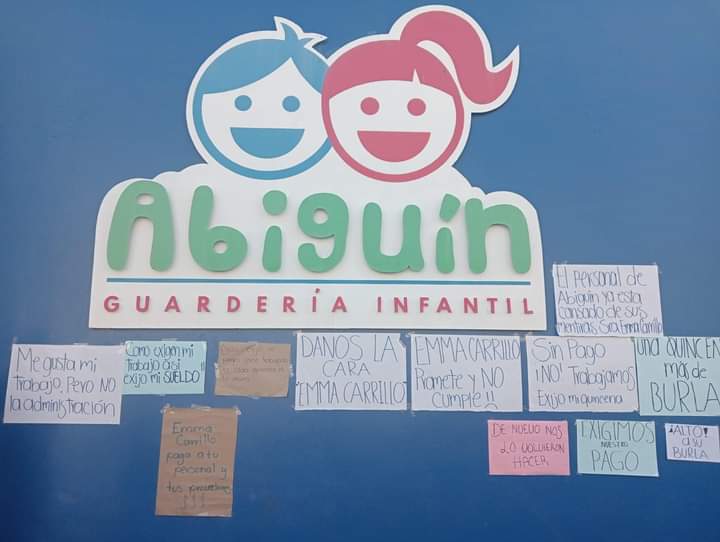 Abiguín
GUARDERÍA INFANTIL
El personal de
Abiguin ya esta
cansado de sus
mentiras Sra. Emma Carrillo
Me gusta mi
trabajo, Pero NO
la administración
Como exigen mi
trabajo así
exijo mi SUELDO!!
DANOS LA
CARA
"EMMA CARRILLO"
EMMA CARRILLO
Promete y NO
cumple!!
Sin Pago
¡NO! Trabajamos
Exijo mi quincena
UNA QUINCENA
más de
BURLA
Emma
Carrillo
paga a tu
personal y
tus
DE NUEVO NOS
LO VOLVIERON
HACER
EXIGIMOS
NUESTRO
PAGO
¡ALTO!
a su
BURLA